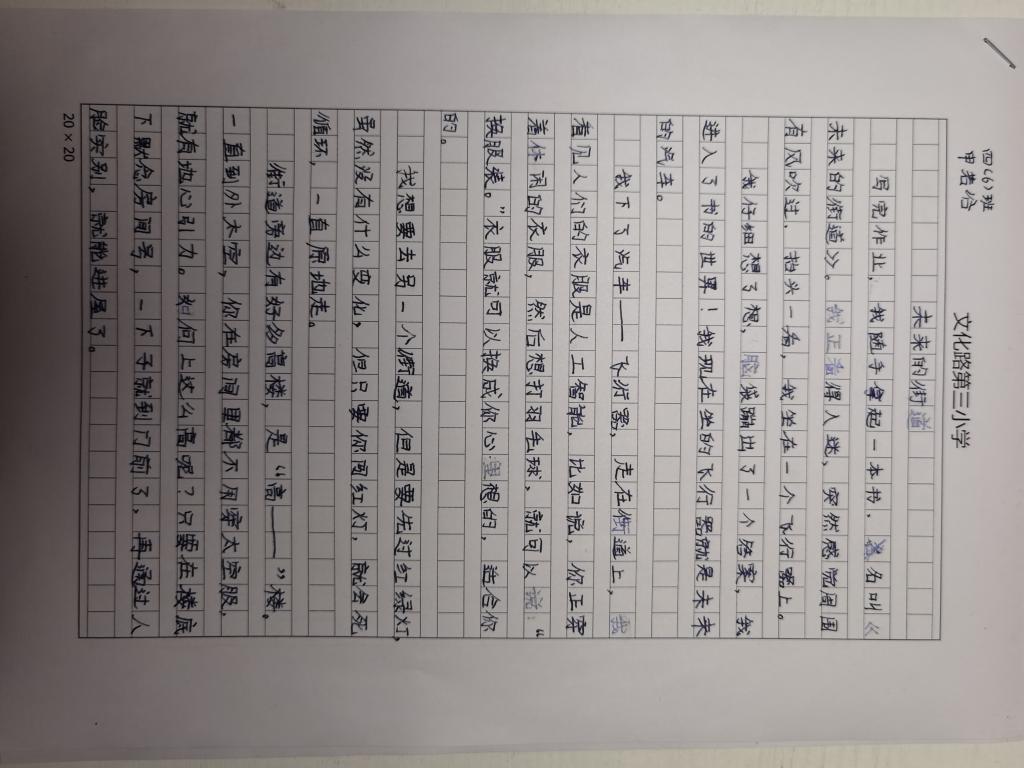 文化路第三小学
四(6)班
申若冾
未来的街道
写完作业，我随手拿起一本书，名叫《
未来的街道》。我正看得入迷，突然感觉周围
有风吹过，抬头一看，我坐在一个飞行器上。
我仔细想了想，脑袋蹦出了一个答案，我
进入了书的世界！我现在坐的飞行器就是未来
的汽车。
我下了汽车——飞行器，走在街道上，我
看见人们的衣服是人工智能，比如说，你正穿
着休闲的衣服，然后想打羽毛球，就可以说：“
换服装。”衣服就可以换成你心里想的，适合你
的。
我想要去另一个街道，但是要先过红绿灯，
虽然没有什么变化，但只要你闯红灯，就会死
循环，一直原地走。
街道旁边有好多高楼，是“高——”楼。
一直到外太空，你在房间里都不用穿太空服，
就有地心引力。如何上这么高呢？只要在楼底
下默念房间号，一下子就到门前了，再通过人
脸实别，就能进屋了。
20×20